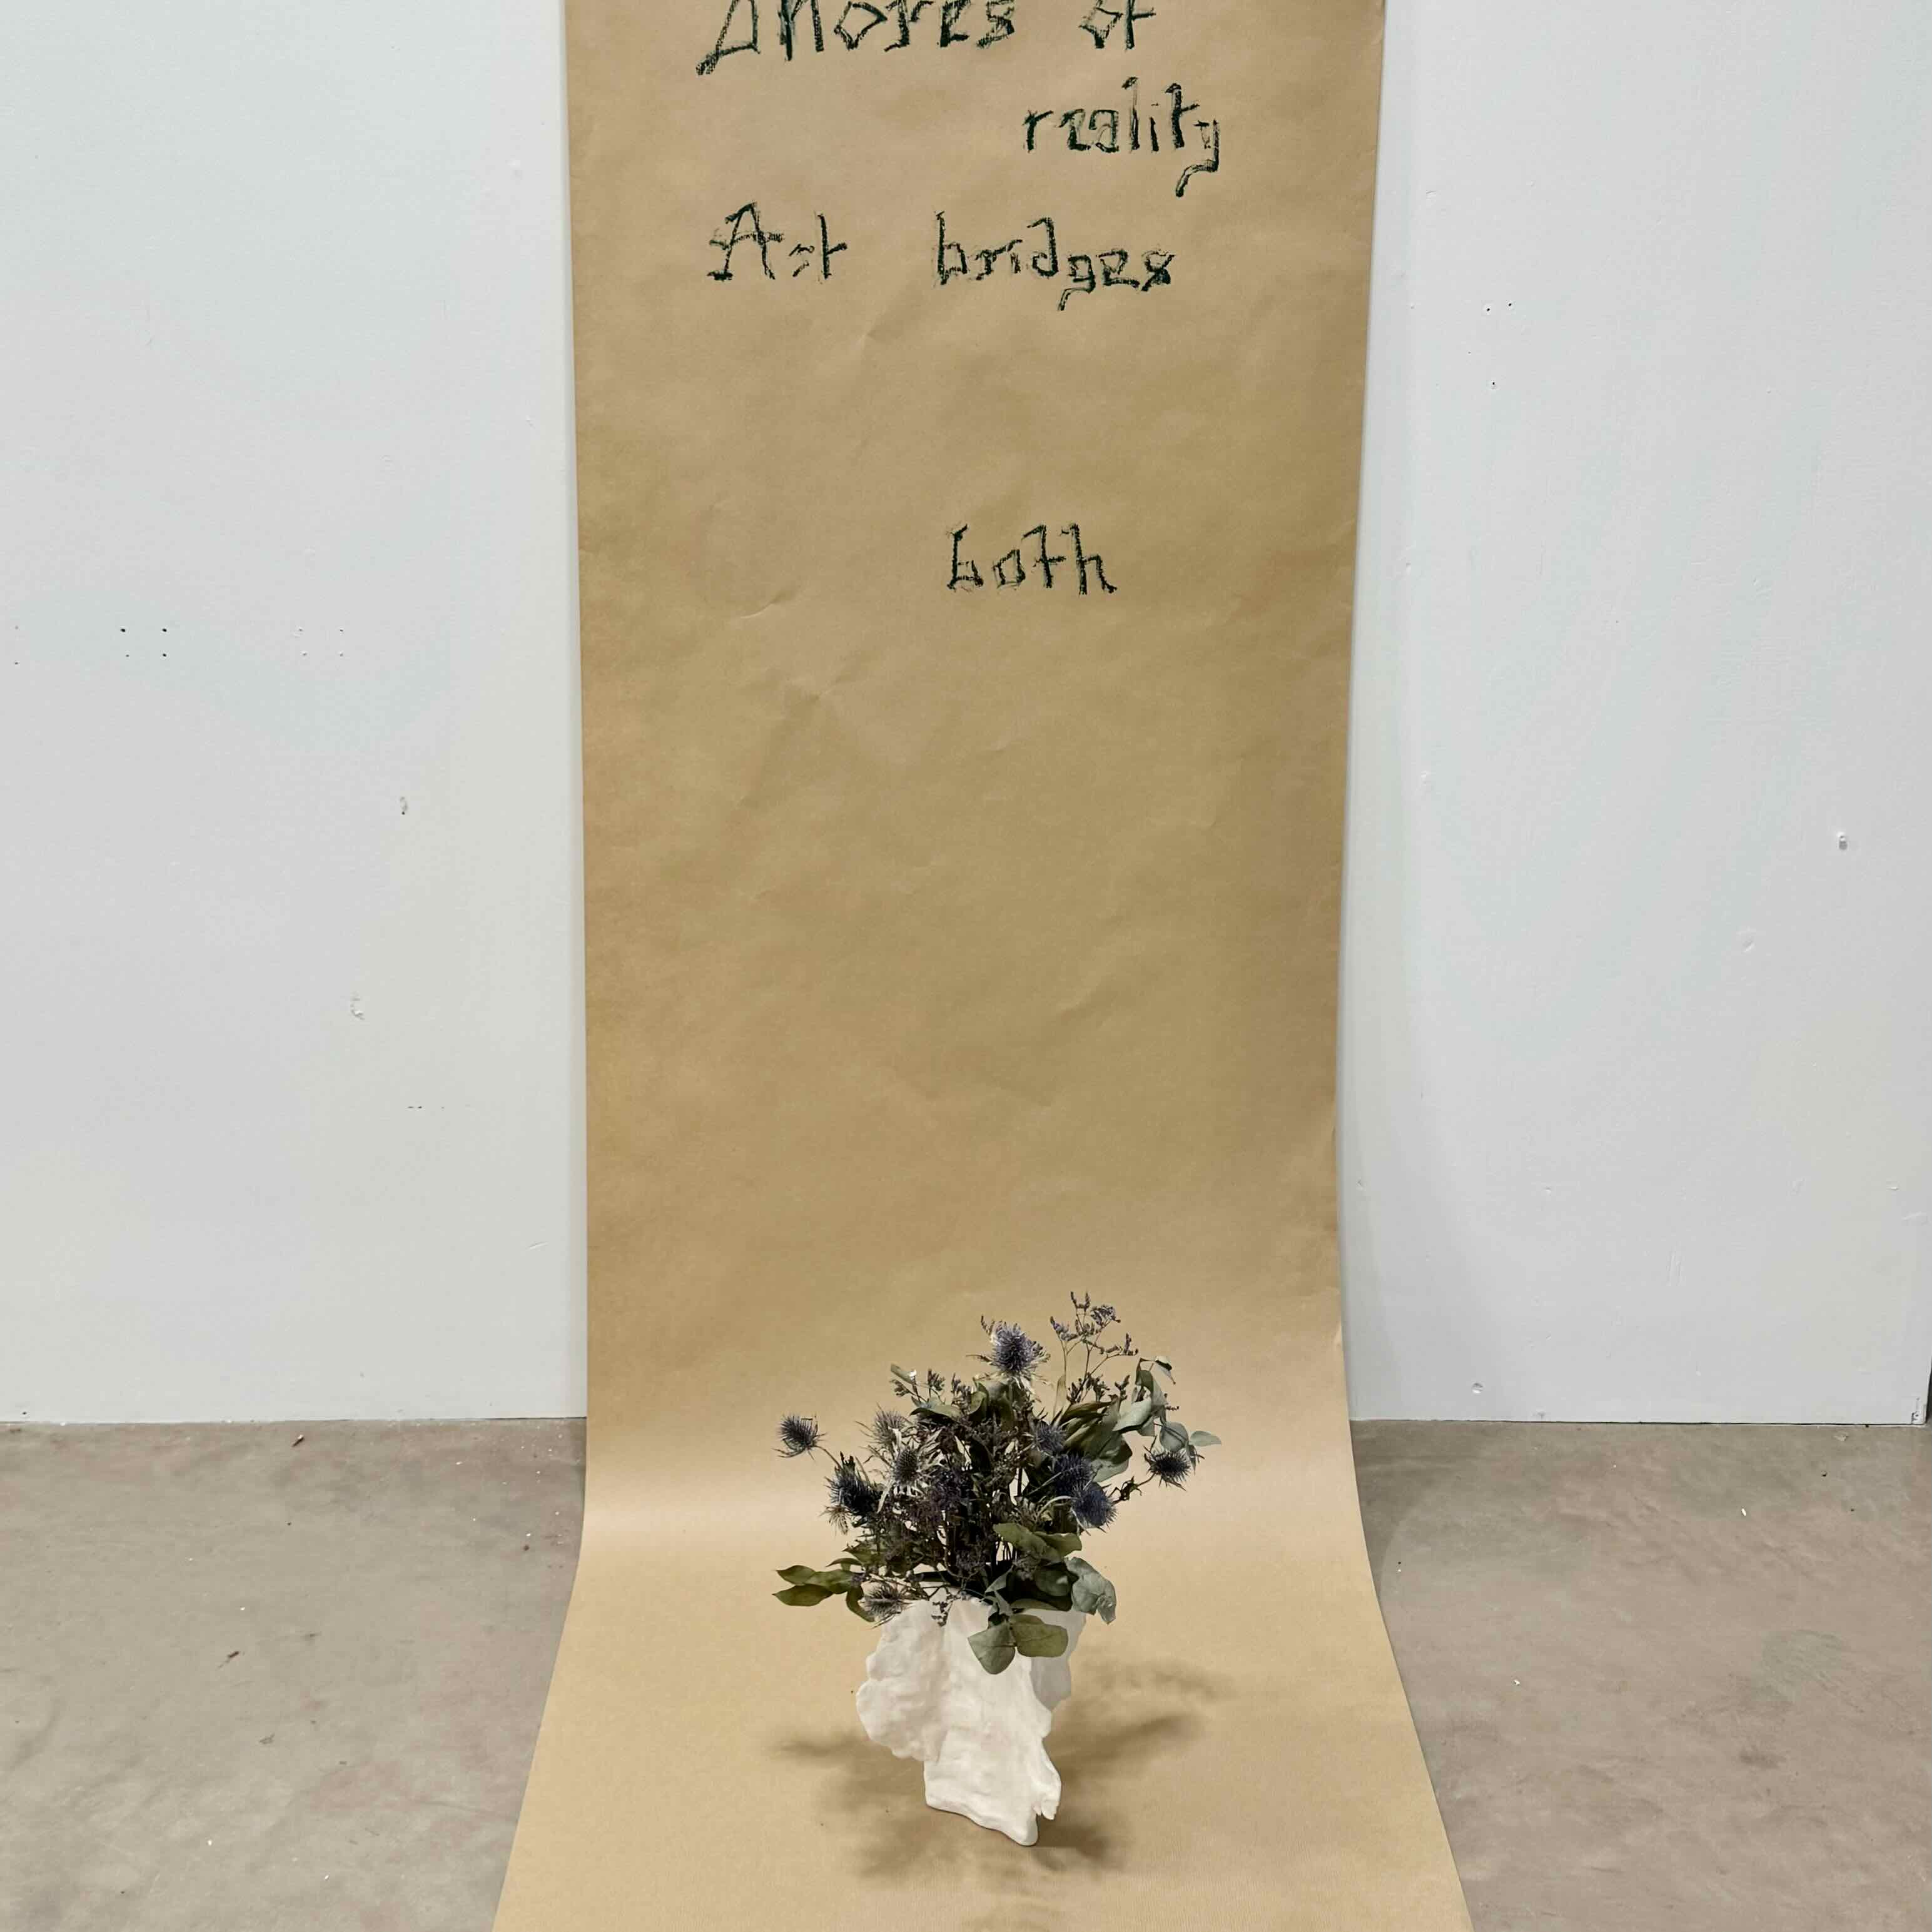 Shores of
reality
Art bridges
both